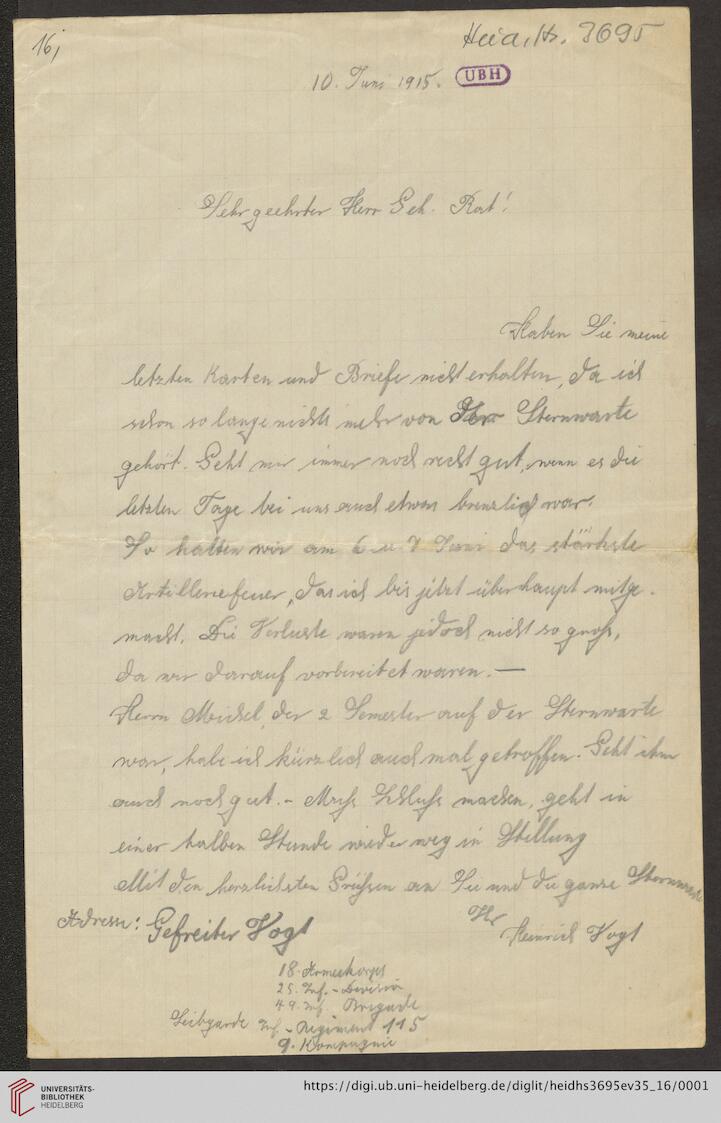 16j
Heid. Hs. 3695
10. Juni 1915.
UBH
Sehr geehrter Herr Geh. Rat!
Haben Sie meine
letzten Karten und Briefe nicht erhalten, da ich
schon so lange nichts mehr von der Sternwarte
gehört. Geht mir immer noch recht gut, wenn es die
letzten Tage bei uns auch etwas brenzlich war.
So hatten wir am 6 u 7 Juni das stärkste
Artilleriefeuer, das ich bis jetzt überhaupt mitge-
macht. Die Verluste waren jedoch nicht so groß,
da wir darauf vorbereitet waren. —
Herrn Michel, der 2 Semester auf der Sternwarte
war, habe ich kürzlich auch mal getroffen. Geht ihm
auch noch gut. – Muß Schluß machen, geht in
einer halben Stunde wieder weg in Stellung
Mit den herzlichsten Grüßen an Sie und die ganze Sternwarte
Ihr
Heinrich Vogt
Adresse: Gefreiter Vogt
18. Armeekorps
25. Inf. - Division
49. Inf. Brigade
Leibgarde Inf - Regiment 115
9. Kompagnie
UNIVERSITÄTS-
BIBLIOTHEK
HEIDELBERG
https://digi.ub.uni-heidelberg.de/diglit/heidhs3695ev35_16/0001